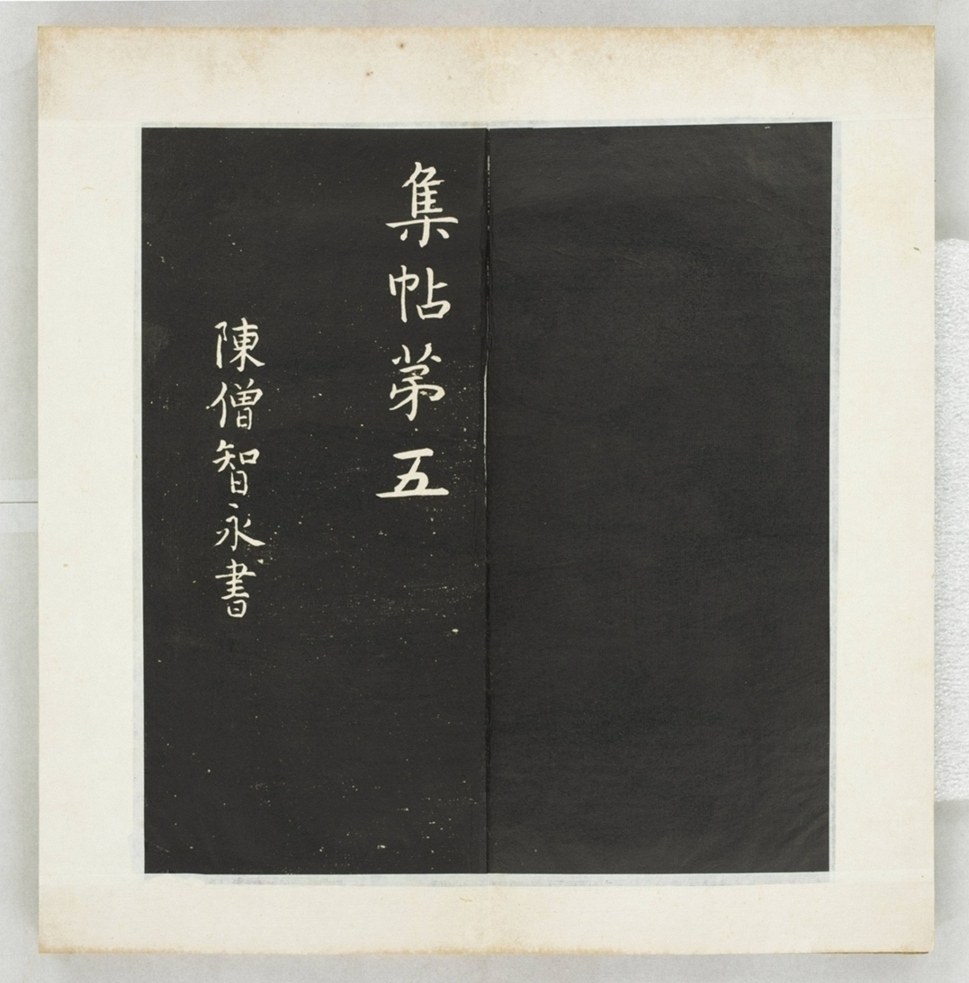 集帖苐五
陳僧智永書